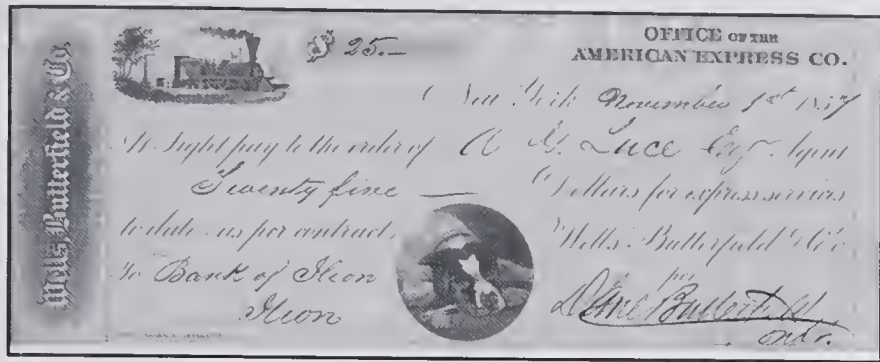 Wells, Butterfield & Co.
$ 25.—
OFFICE OF THE
AMERICAN EXPRESS CO.
New York November 1st 1857
At Sight pay to the order of A Luce Esq Agent
Twenty five — Dollars for express services
to date as per contract. Wells, Butterfield & Co
To Bank of Ilion per
Ilion Butterfield